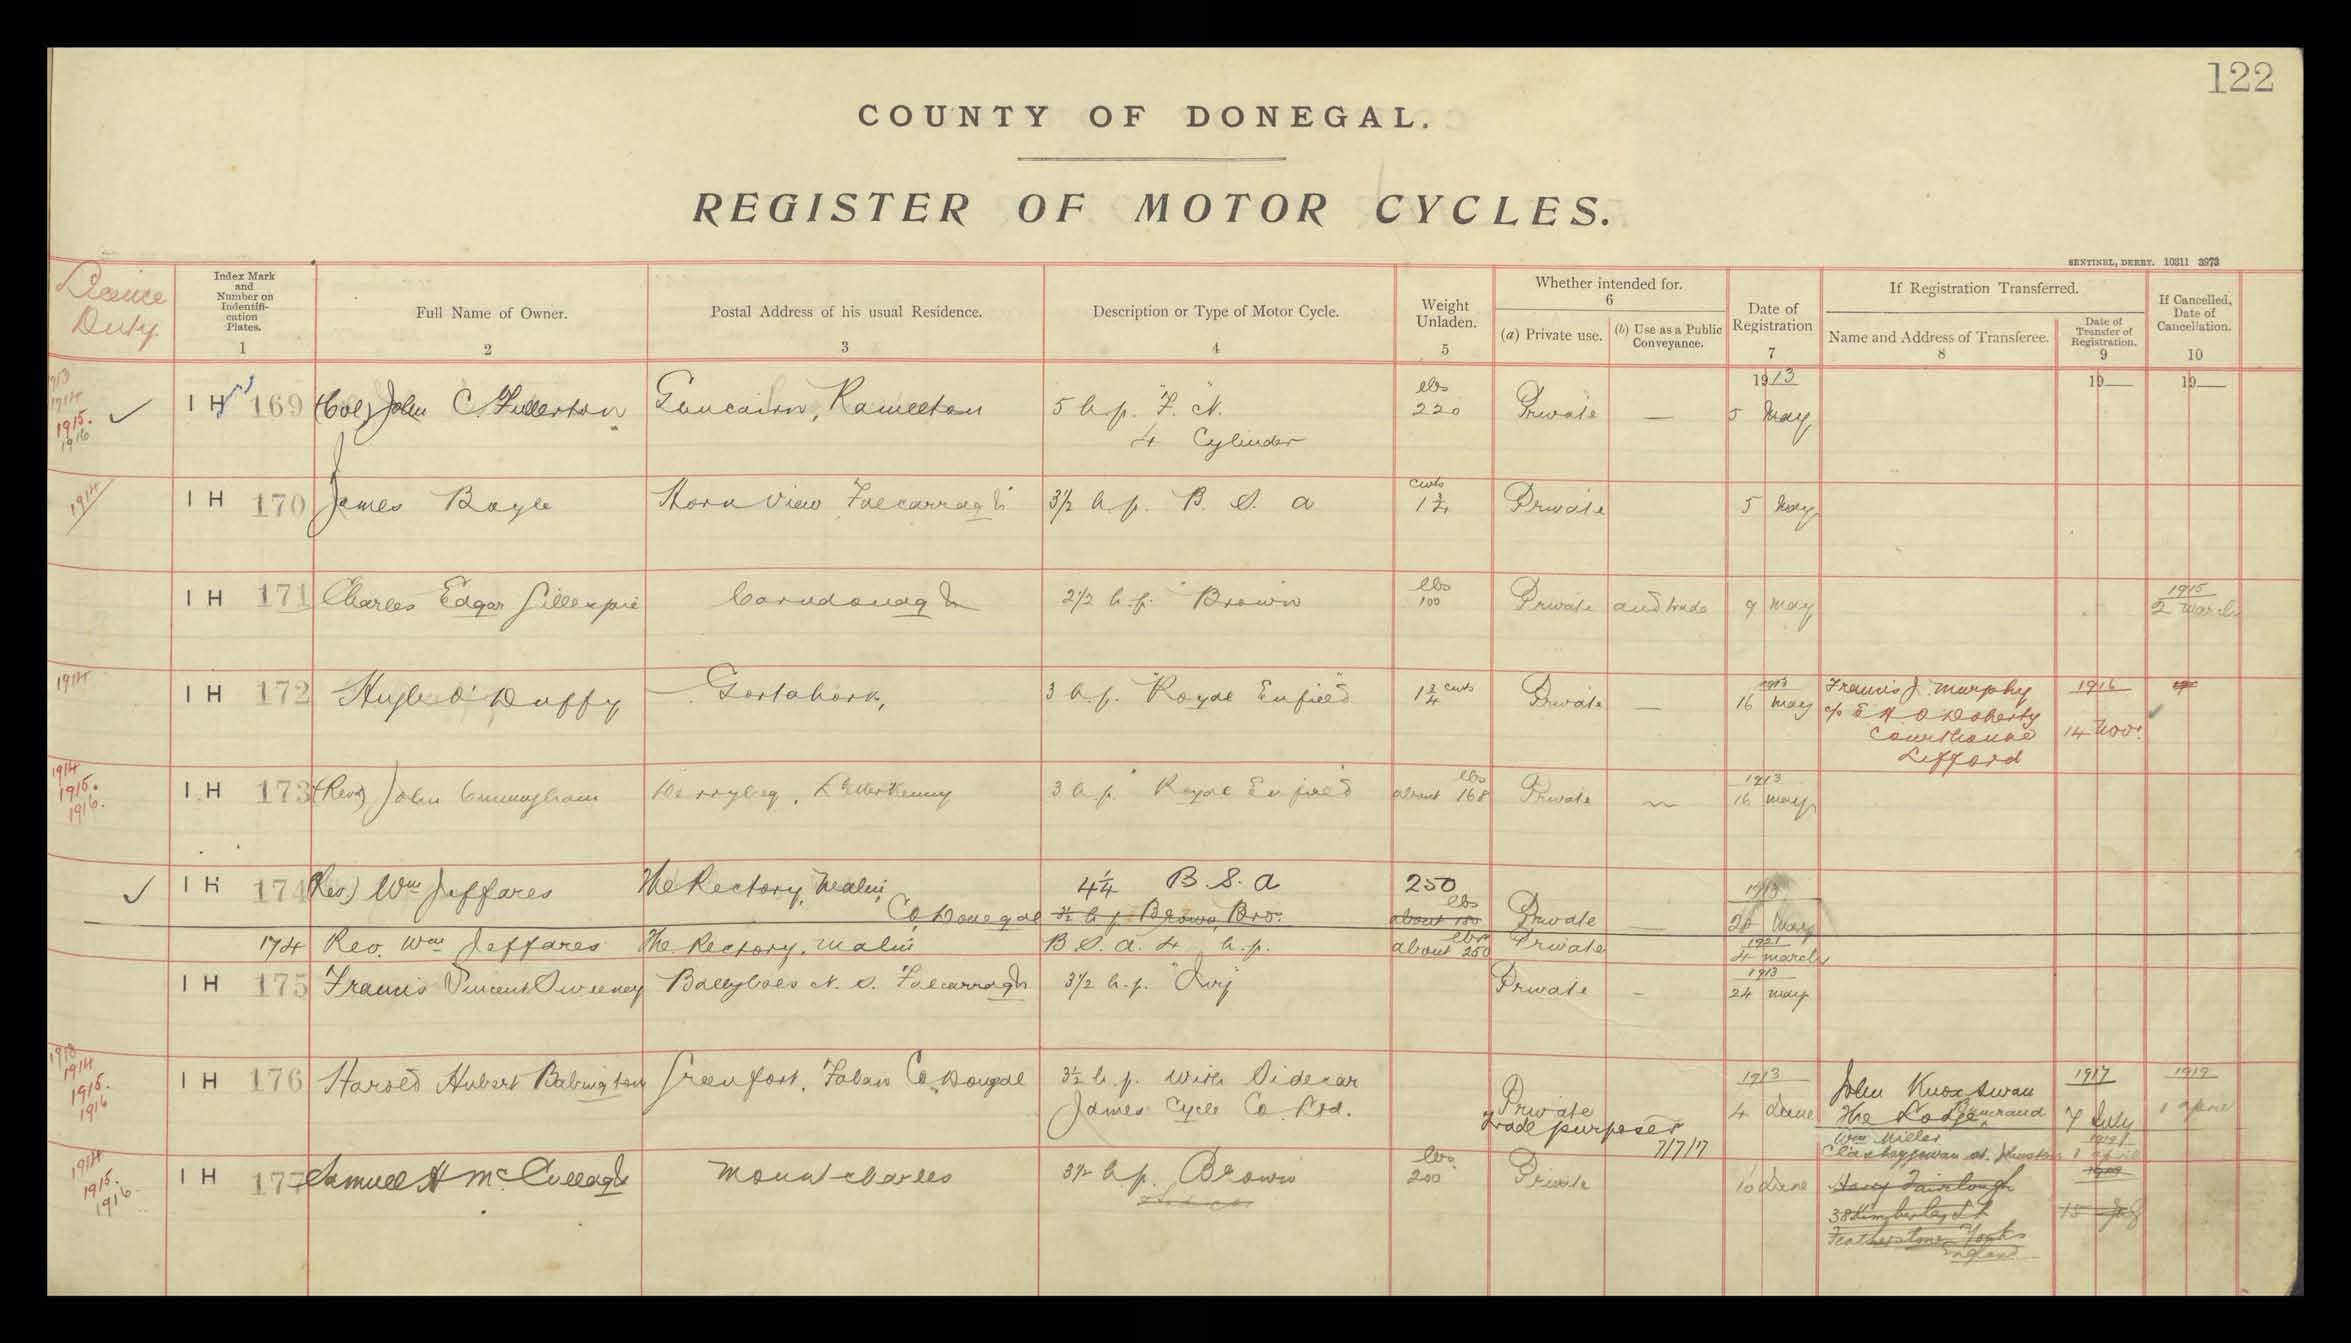 122
COUNTY OF DONEGAL.
REGISTER OF MOTOR CYCLES.
SENTINEL, DERRY. 10311 3973
Licence
Duty.
Index Mark
and
Number on
Indentifi-
cation
Plates.
1
Full Name of Owner.
2
Postal Address of his usual Residence.
3
Description or Type of Motor Cycle.
4
Weight
Unladen.
5
Whether intended for.
6
(a) Private use.
(b) Use as a Public
Conveyance.
Date of
Registration
7
If Registration Transferred.
Name and Address of Transferee.
8
Date of
Transfer of
Registration.
9
If Cancelled,
Date of
Cancellation.
10
1913
1914
1915.
1916
I H 169 (Col) John C. Fullerton Ramelton 5 h.p. "F. N." lbs 220 Private — 1913 5 May 19 19
4 Cylinder
1914
I H 170 James Boyle Hornview Falcarragh 3½ h.p. B. S. A cwts 1¾ Private 5 May
I H 171 Charles Edgar Gillespie Carndonagh 2½ h.p. Brown lbs 100 Private and trade 9 May 1915 2 March
1914
I H 172 Hugh O'Duffy Gortahork, 3 h.p. "Royal Enfield" 1¾ cwts Private — 1913 16 May Francis J. Murphy 1916
c/o E H O'Doherty
Courthouse 14 Nov.
Lifford
1914
1915.
1916.
I H 173 (Revd) John Cunningham Derrybeg, Letterkenny 3 h.p. "Royal Enfield" lbs about 168 Private — 1913 16 May
I H 174 (Rev.) Wm Jeffares The Rectory, Malin, 4¼ B. S. A 250 1913
Co Donegal 3½ h.p. Brown Bro. lbs about 180 Private — 20 May
174 Rev. Wm Jeffares The Rectory, Malin B S. A. 4 h.p. lbs about 250 Private 1921 4 March
I H 175 Francis Vincent Sweeney Ballyboes N. S. Falcarragh 3½ h.p. "Ivy" Private - 1913 24 May
1913
1914
1915.
1916
I H 176 Harold Hubert Babington Greenfort, Fahan Co Donegal 3½ h.p. with Sidecar 1913 John Knox Swan 1917 1919
James Cycle Co. Ltd. Private 4 June The Lodge, Buncrana 7 July 1 April
& trade purposes
7/7/17
Wm Miller 1921
1 April
1914
1915.
1916.
I H 177 Samuel H McCullagh Mountcharles 3½ h.p. Brown lbs 200 Private 10 June Harry Fairclough
38 Kimberley St 15
Featherstone Yorks
England